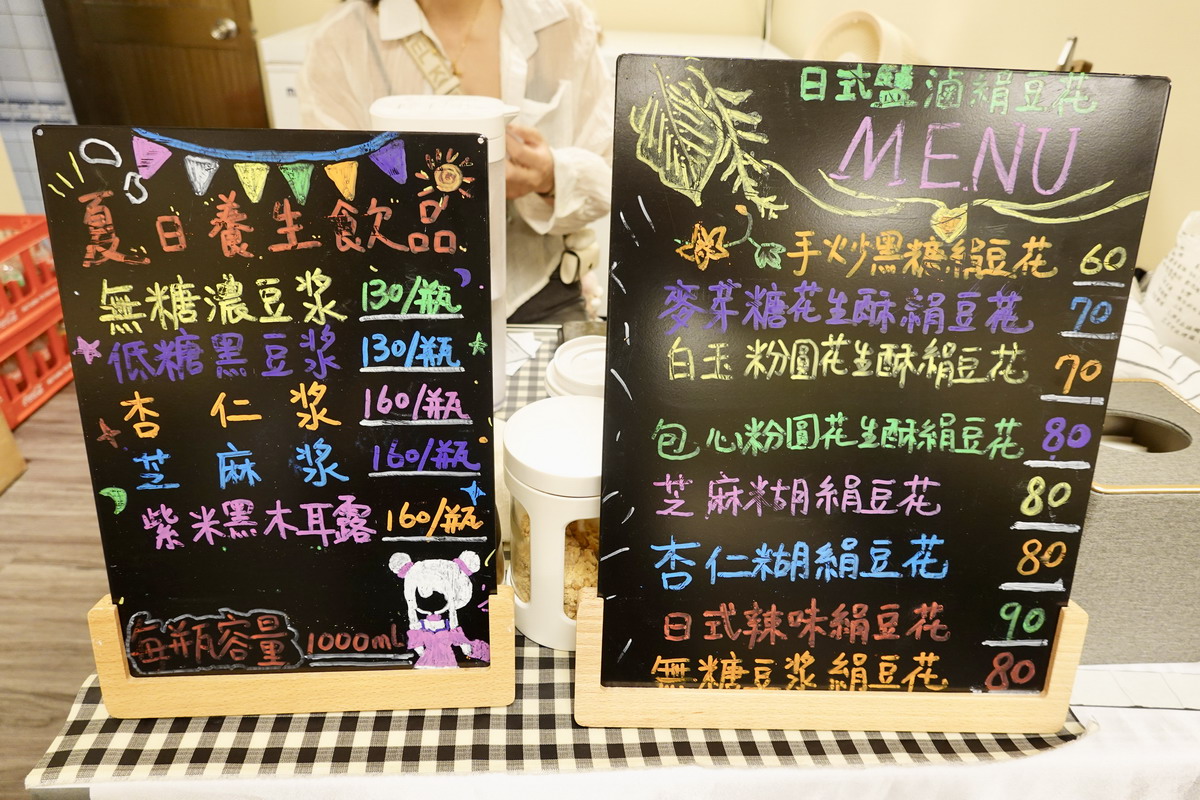 夏日養生飲品
無糖濃豆漿 130/瓶
低糖黑豆漿 130/瓶
杏仁漿 160/瓶
芝麻漿 160/瓶
紫米黑木耳露 160/瓶
每瓶容量 1000mL
日式鹽滷絹豆花
MENU
手炒黑糖絹豆花 60
麥芽糖花生酥絹豆花 70
白玉粉圓花生酥絹豆花 70
包心粉圓花生酥絹豆花 80
芝麻糊絹豆花 80
杏仁糊絹豆花 80
日式辣味絹豆花 90
無糖豆漿絹豆花 80